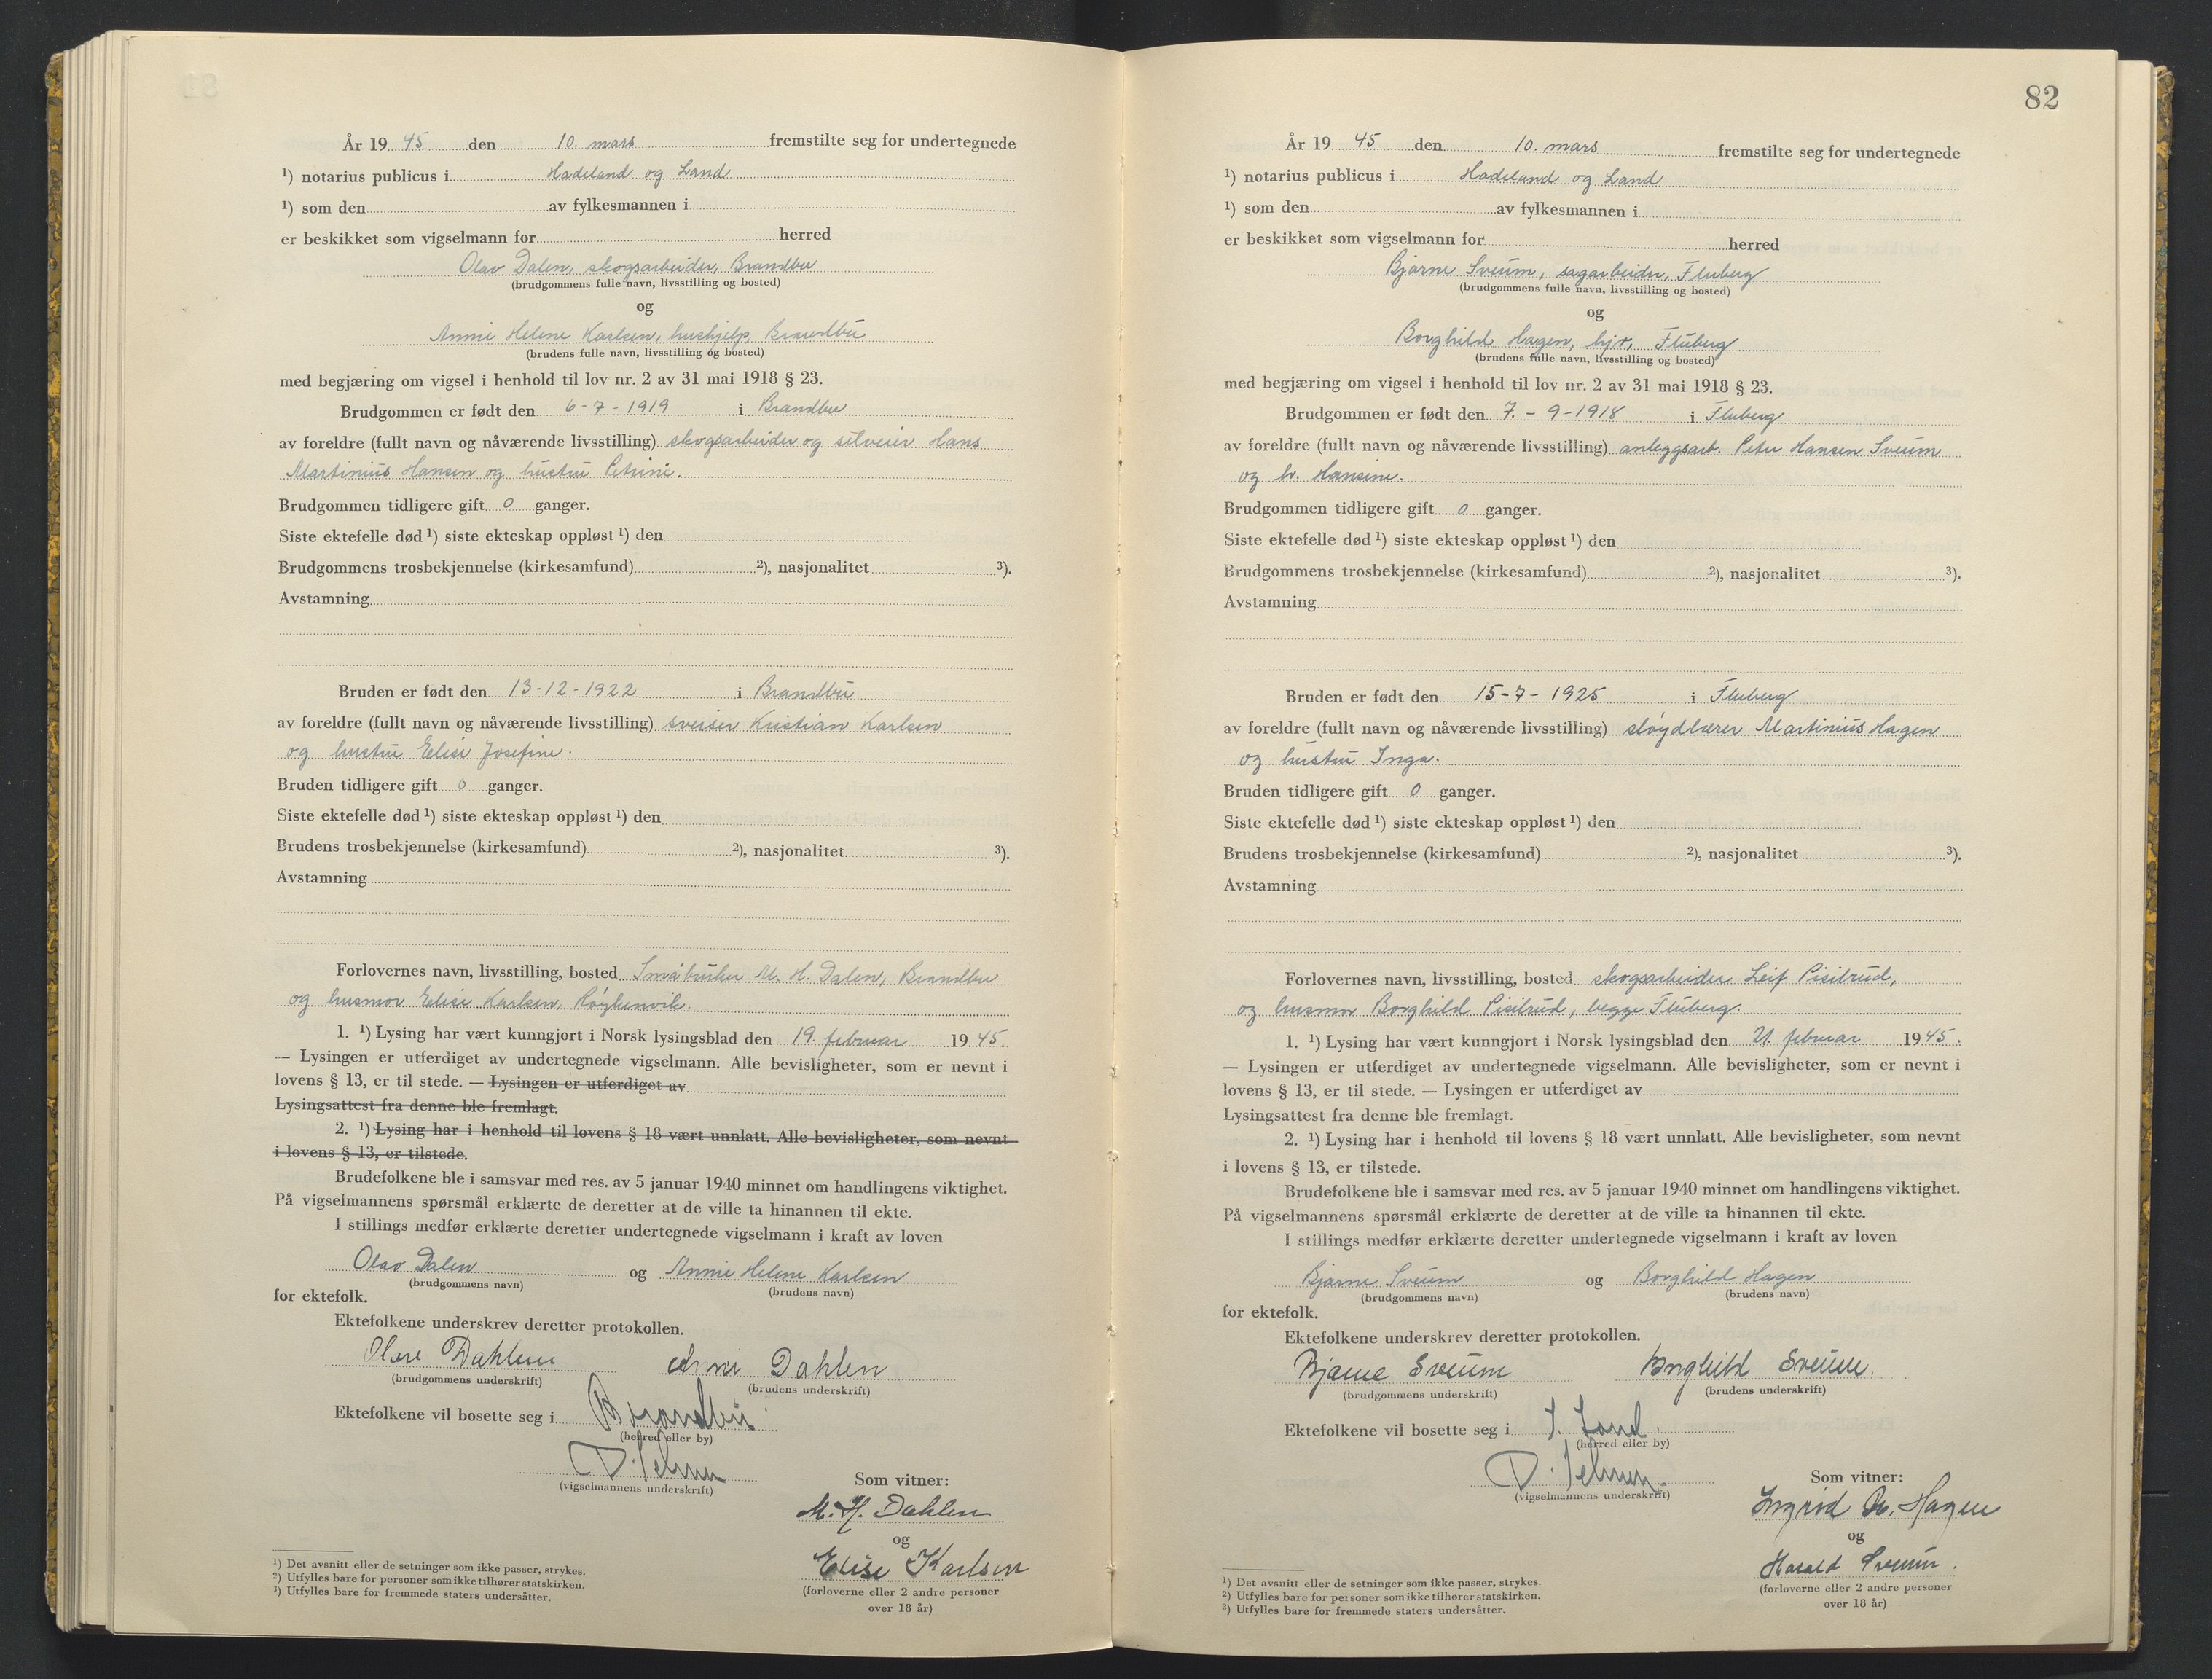 År 19 45 den 10. mars fremstilte seg for undertegnede
¹) notarius publicus i Hadeland og Land
¹) som den av fylkesmannen i
er beskikket som vigselmann for herred
Olav Dalen, skogsarbeider, Brandbu
(brudgommens fulle navn, livsstilling og bosted)
og
Annie Helene Karlsen, hushjelp, Brandbu
(brudens fulle navn, livsstilling og bosted)
med begjæring om vigsel i henhold til lov nr. 2 av 31 mai 1918 § 23.
Brudgommen er født den 6-7-1919 i Brandbu
av foreldre (fullt navn og nåværende livsstilling) skogsarbeider og Hans
Martinius Hansen og hustru Petrine.
Brudgommen tidligere gift 0 ganger.
Siste ektefelle død ¹) siste ekteskap oppløst ¹) den
Brudgommens trosbekjennelse (kirkesamfund) ²), nasjonalitet ³).
Avstamning
Bruden er født den 13-12-1922 i Brandbu
av foreldre (fullt navn og nåværende livsstilling) sveiser Kristian Karlsen
og hustru Elise Josefine.
Bruden tidligere gift 0 ganger.
Siste ektefelle død ¹) siste ekteskap oppløst ¹) den
Brudens trosbekjennelse (kirkesamfund) ²), nasjonalitet ³).
Avstamning
Forlovernes navn, livsstilling, bosted Småbruker M. H. Dalen, Brandbu
og husmor Elise Karlsen, Røykenvik.
1. ¹) Lysing har vært kunngjort i Norsk lysingsblad den 19. februar 19 45.
— Lysingen er utferdiget av undertegnede vigselmann. Alle bevisligheter, som er nevnt i
lovens § 13, er til stede. — Lysingen er utferdiget av
Lysingsattest fra denne ble fremlagt.
2. ¹) Lysing har i henhold til lovens § 18 vært unnlatt. Alle bevisligheter, som nevnt
i lovens § 13, er tilstede.
Brudefolkene ble i samsvar med res. av 5 januar 1940 minnet om handlingens viktighet.
På vigselmannens spørsmål erklærte de deretter at de ville ta hinannen til ekte.
I stillings medfør erklærte deretter undertegnede vigselmann i kraft av loven
Olav Dalen og Annie Helene Karlsen
(brudgommens navn) (brudens navn)
for ektefolk.
Ektefolkene underskrev deretter protokollen.
Olav Dahlen Anni Dahlen
(brudgommens underskrift) (brudens underskrift)
Ektefolkene vil bosette seg i Brandbu
(herred eller by)
(vigselmannens underskrift)
Som vitner:
M. H. Dahlen
og
Elise Karlsen
(forloverne eller 2 andre personer
over 18 år)
¹) Det avsnitt eller de setninger som ikke passer, strykes.
²) Utfylles bare for personer som ikke tilhører statskirken.
³) Utfylles bare for fremmede staters undersåtter.
82
År 19 45 den 10. mars fremstilte seg for undertegnede
¹) notarius publicus i Hadeland og Land
¹) som den av fylkesmannen i
er beskikket som vigselmann for herred
Bjarne Sveum, sagarbeider, Fluberg
(brudgommens fulle navn, livsstilling og bosted)
og
Borghild Hagen, hjv, Fluberg
(brudens fulle navn, livsstilling og bosted)
med begjæring om vigsel i henhold til lov nr. 2 av 31 mai 1918 § 23.
Brudgommen er født den 7. - 9 - 1918 i Fluberg
av foreldre (fullt navn og nåværende livsstilling) anleggsarb. Peter Hansen Sveum
og h. Hansine.
Brudgommen tidligere gift 0 ganger.
Siste ektefelle død ¹) siste ekteskap oppløst ¹) den
Brudgommens trosbekjennelse (kirkesamfund) ²), nasjonalitet ³).
Avstamning
Bruden er født den 15-7-1925 i Fluberg
av foreldre (fullt navn og nåværende livsstilling) sløydlærer Martinius Hagen
og hustru Inga.
Bruden tidligere gift 0 ganger.
Siste ektefelle død ¹) siste ekteskap oppløst ¹) den
Brudens trosbekjennelse (kirkesamfund) ²), nasjonalitet ³).
Avstamning
Forlovernes navn, livsstilling, bosted skogsarbeider Leif Pisilrud,
og husmor Borghild Pisilrud, begge Fluberg.
1. ¹) Lysing har vært kunngjort i Norsk lysingsblad den 21. februar 19 45.
— Lysingen er utferdiget av undertegnede vigselmann. Alle bevisligheter, som er nevnt i
lovens § 13, er til stede. — Lysingen er utferdiget av
Lysingsattest fra denne ble fremlagt.
2. ¹) Lysing har i henhold til lovens § 18 vært unnlatt. Alle bevisligheter, som nevnt
i lovens § 13, er tilstede.
Brudefolkene ble i samsvar med res. av 5 januar 1940 minnet om handlingens viktighet.
På vigselmannens spørsmål erklærte de deretter at de ville ta hinannen til ekte.
I stillings medfør erklærte deretter undertegnede vigselmann i kraft av loven
Bjarne Sveum og Borghild Hagen
(brudgommens navn) (brudens navn)
for ektefolk.
Ektefolkene underskrev deretter protokollen.
Bjarne Sveum Borghild Sveum.
(brudgommens underskrift) (brudens underskrift)
Ektefolkene vil bosette seg i S. Land.
(herred eller by)
(vigselmannens underskrift)
Som vitner:
Ingrid M. Hagen
og
Harald Sveum.
(forloverne eller 2 andre personer
over 18 år)
¹) Det avsnitt eller de setninger som ikke passer, strykes.
²) Utfylles bare for personer som ikke tilhører statskirken.
³) Utfylles bare for fremmede staters undersåtter.